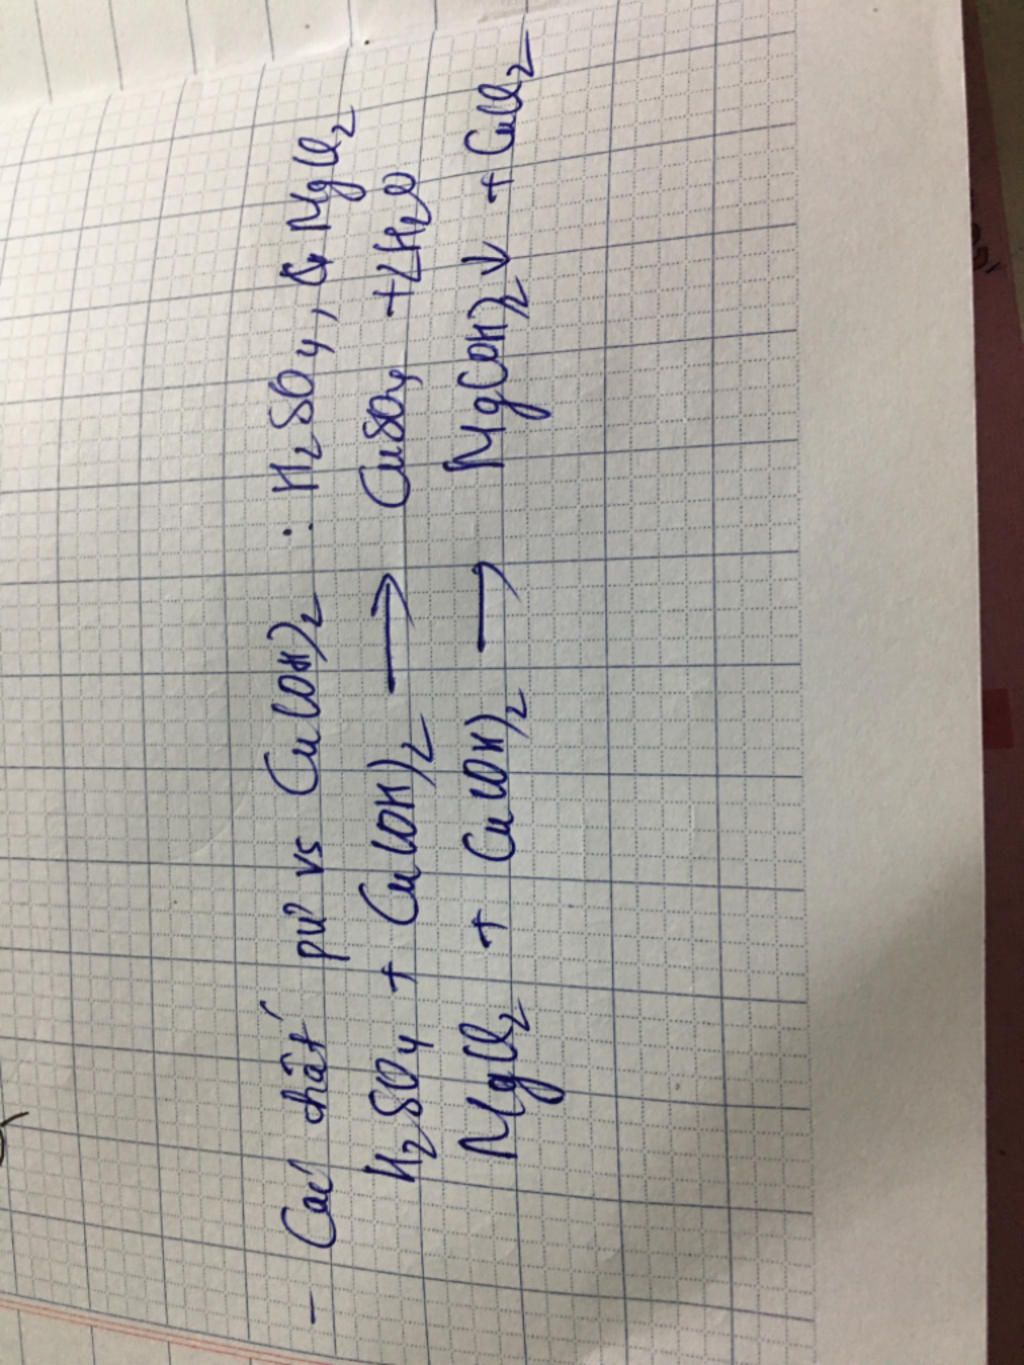 - Các chất pứ vs Cu(OH)2 : H2SO4, MgCl2
H2SO4 + Cu(OH)2 → CuSO4 + 2H2O
MgCl2 + Cu(OH)2 → Mg(OH)2↓ + CuCl2